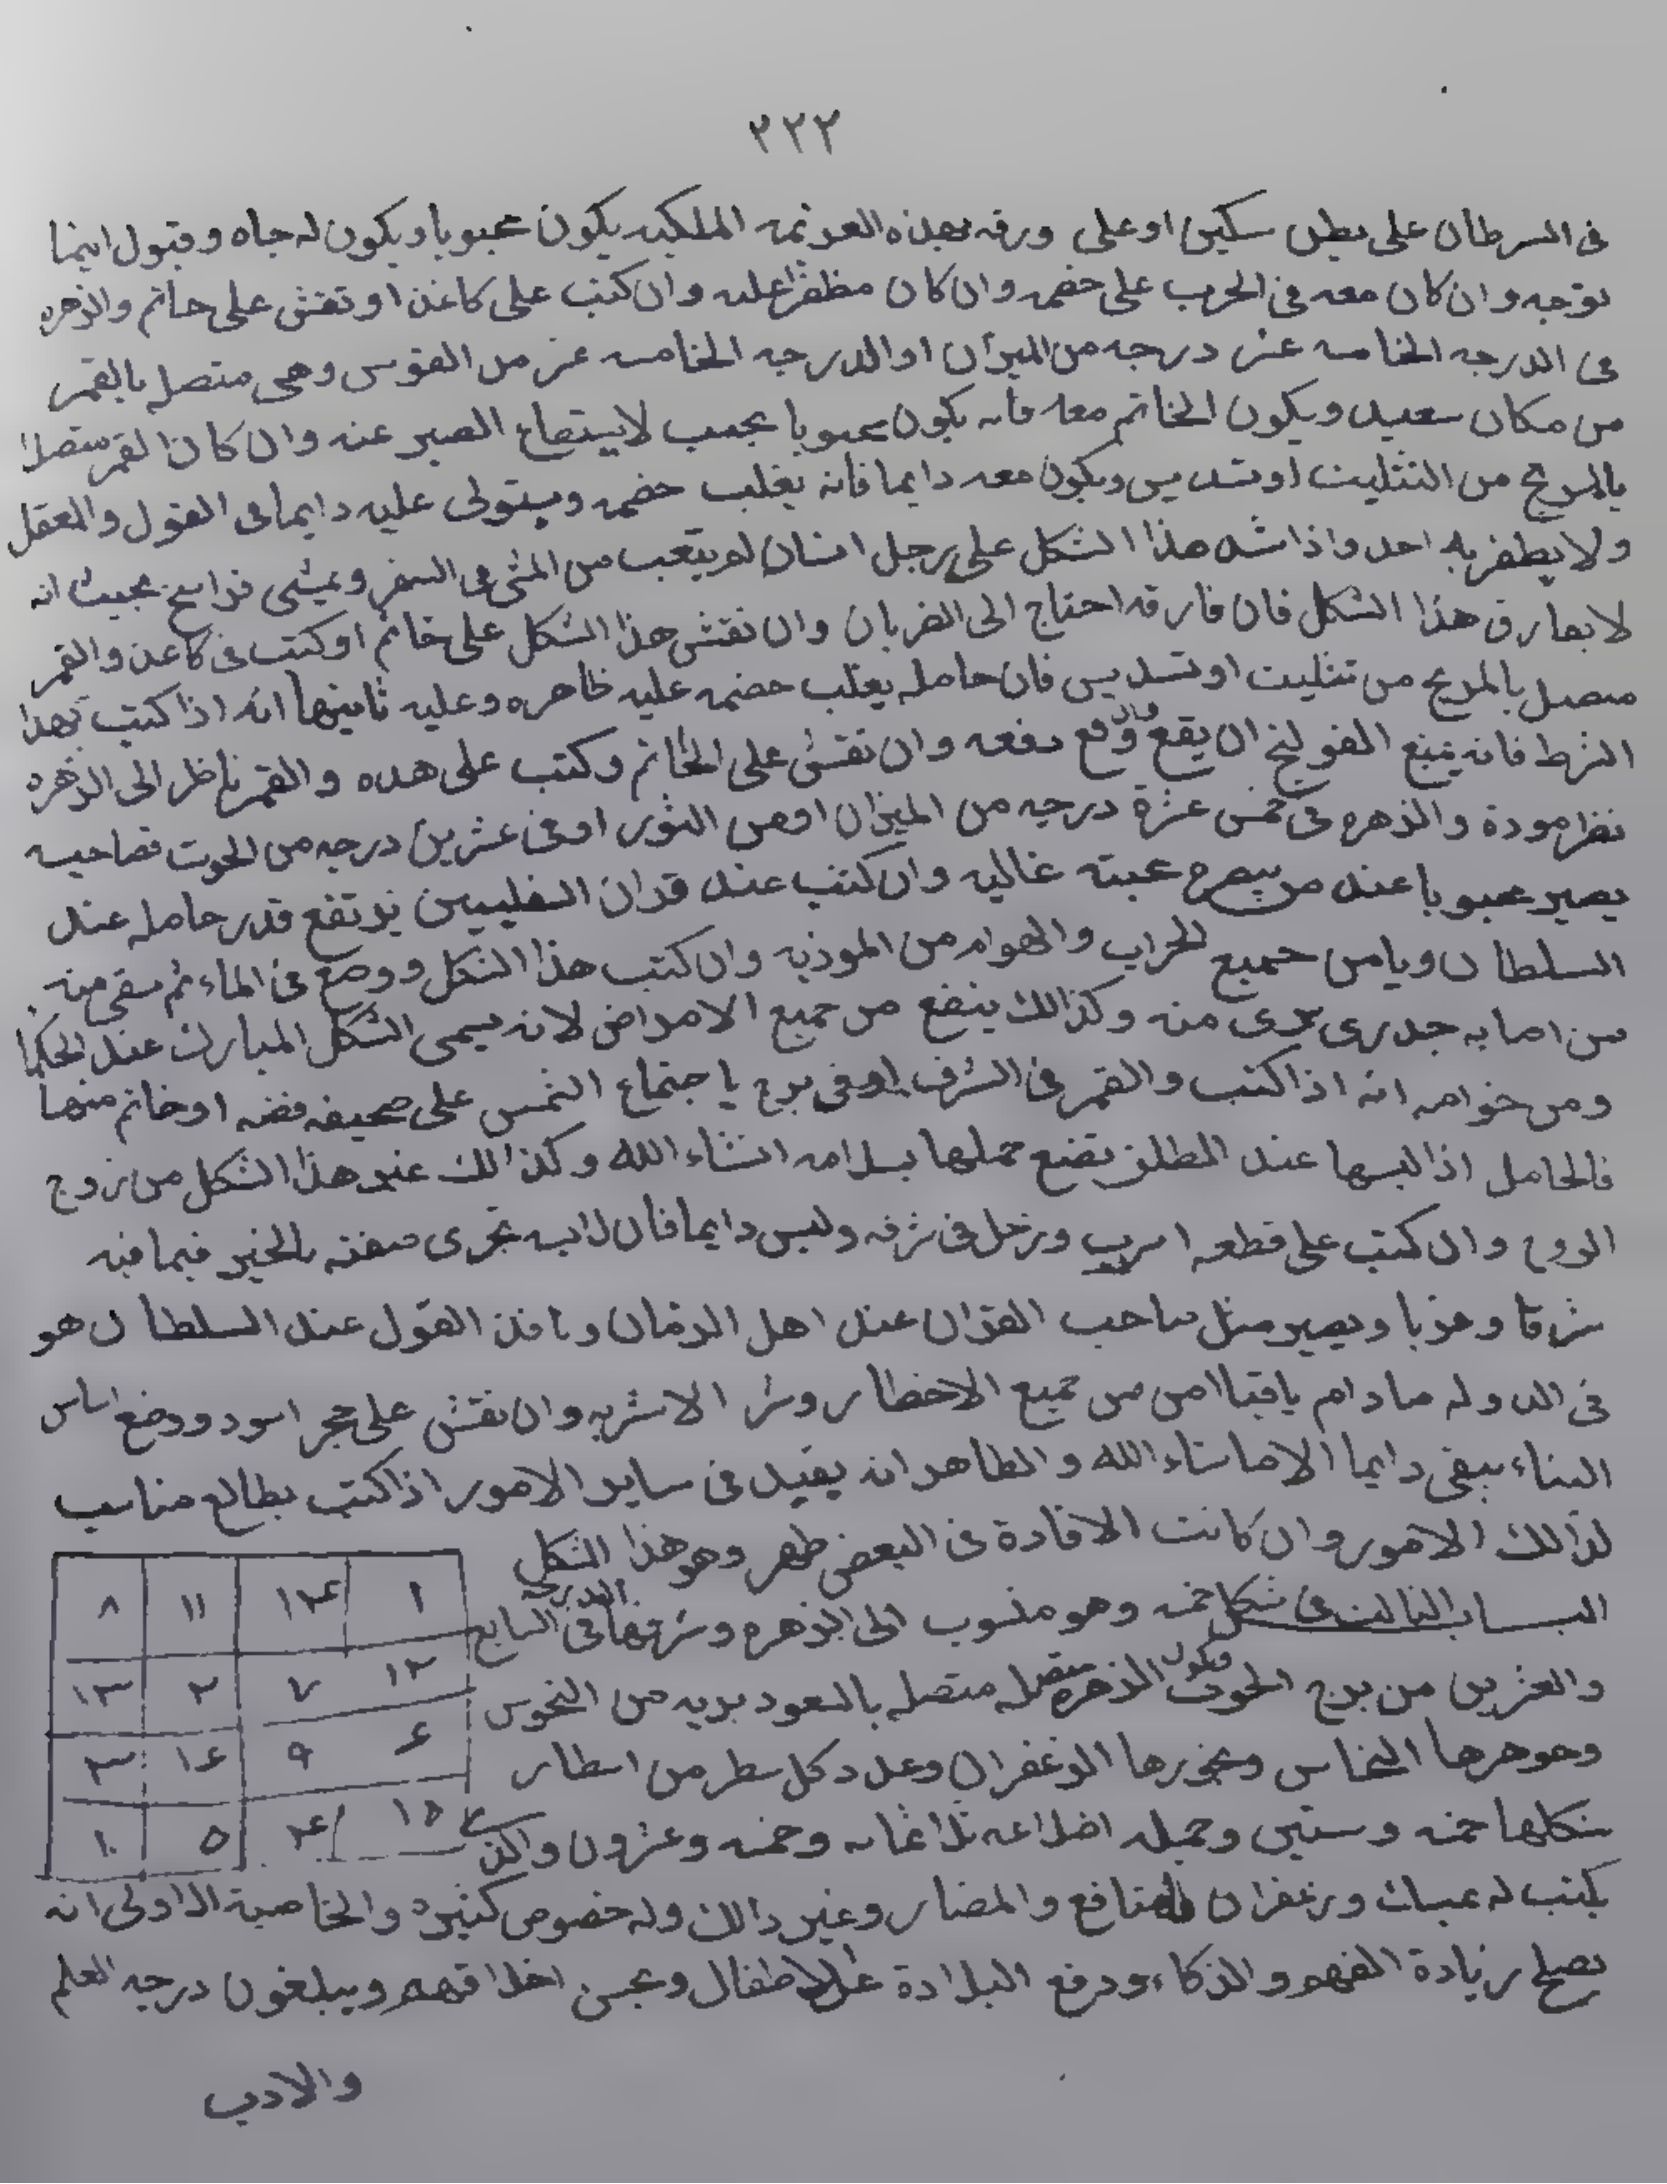 ٢٢٢
فى السرطان على بطن سكين او على ورقه بهذه العزيمه الملكيه يكون محبوبا ويكون له جاه وقبول اينما
توجه وان كان معه فى الحرب على خصمه وان كان مظفرا عليه وان كتب على كاغذ او نقش على خاتم والزهره
فى الدرجه الخامسه عشر درجه من الميزان او الدرجه الخامسه عشر من القوس وهى متصله بالقمر
من مكان سعيد ويكون الخاتم معه فانه يكون محبوبا بحيث لا يستطاع الصبر عنه وان كان القمر متصلا
بالمريخ من التثليث او تسديس ويكون معه دايما فانه يغلب خصمه ويستولى عليه دايما فى القول والعقل
ولا يظفر به احد واذا شد هذا الشكل على رجل انسان لم يتعب من المشى فى السفر ويمشى فراسخ بحيث انه
لا يفارق هذا الشكل فان فارقه احتاج الى الضربان وان نقش هذا الشكل على خاتم او كتب فى كاغذ والقمر
متصل بالمريخ من تثليث او تسديس فان حامله يغلب خصمه عليه ظاهره وعليه ثانيها انه اذا كتب بهذا
الشرط فانه يمنع القولنج ان يقع وان وقع دفعه وان نقش على الخاتم وكتب على هذه والقمر ناظر الى الزهره
نظر مودة والزهره فى خمس عشرة درجه من الميزان او من الثور او فى عشرين درجه من الحوت فصاحبه
يصير محبوبا عند من يبصره محبته غاليه وان كتب عند قران السفليين يرتفع قدر حامله عند
السلطان ويامن جميع الحراب والهوام من الموذيه وان كتب هذا الشكل ووضع فى الماء ثم سقى منه
من اصابه جدرى برى منه وكذالك ينفع من جميع الامراض لانه يسمى الشكل المبارك عند الحكما
ومن خواصه انه اذا كتب والقمر فى الشرف او فى برج با جتماع الشمس على صحيفه فضه او خاتم منها
فالحامل اذا لبسها عند الطلق تضع حملها بسلامه انشاء الله وكذالك عنى هذا الشكل من زوج
الزوج وان كتب على قطعه اسرب وزحل فى شرفه ولبس دايما فان لابسه تجرى صفته بالخير فيما فيه
شرقا وغربا ويصير مثل صاحب القران عند اهل الزمان ونافذ القول عند السلطان هو
فى الدوله مادام باقيا امن من جميع الاخطار وشر الاشربه وان نقش على حجر اسود ووضع اساس
البناء يبقى دايما الا ماشاء الله والظاهر انه يفيد فى ساير الامور اذا كتب بطالع مناسب
لذالك الامور وان كانت الافادة فى البعض ظهر وهو هذا الشكل
البــاب الثالث فى شكل خمسه وهو منسوب الى الزهره وشرفها فى الدرجه السابع
والعشرين من برج الحوت فيكون الزهره متصله متصله بالسعود بريه من النحوس
وجوهرها النحاس وبخورها الزعفران وعدد كل سطر من اسطار
شكلها خمسه وستين وجمله اضلاعه ثلاثمائه وخمسه وعشرون ولكن
يكتب له بمسك وزعفران للمنافع والمضار وغير ذالك وله خصوص كثيره والخاصية الاولى انه
يصلح زيادة الفهم والذكاء ودفع البلادة عن الاطفال ويحسن اخلاقهم ويبلغون درجه العلم
والادب
١ ١٤ ١١ ٨
١٢ ٧ ٢ ١٣
٦ ٩ ١٦ ٣
١٥ ٤ ٥ ١٠